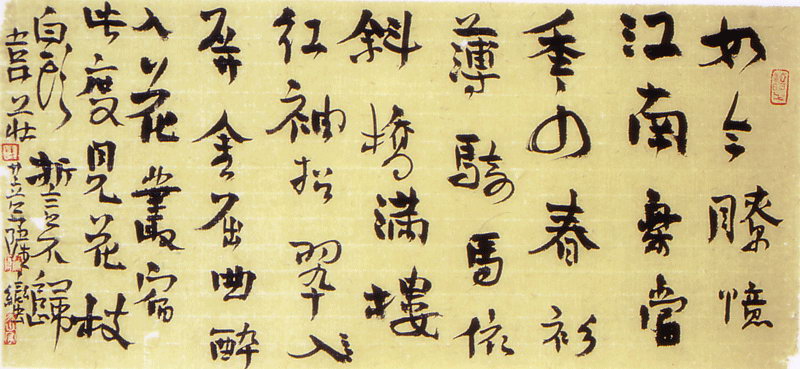 如今卻憶
江南樂當
年少春衫
薄騎馬依
斜橋滿樓
紅袖招翠入
屏金屈曲醉
入花叢宿
此度見花枝
白頭誓不歸
韋莊